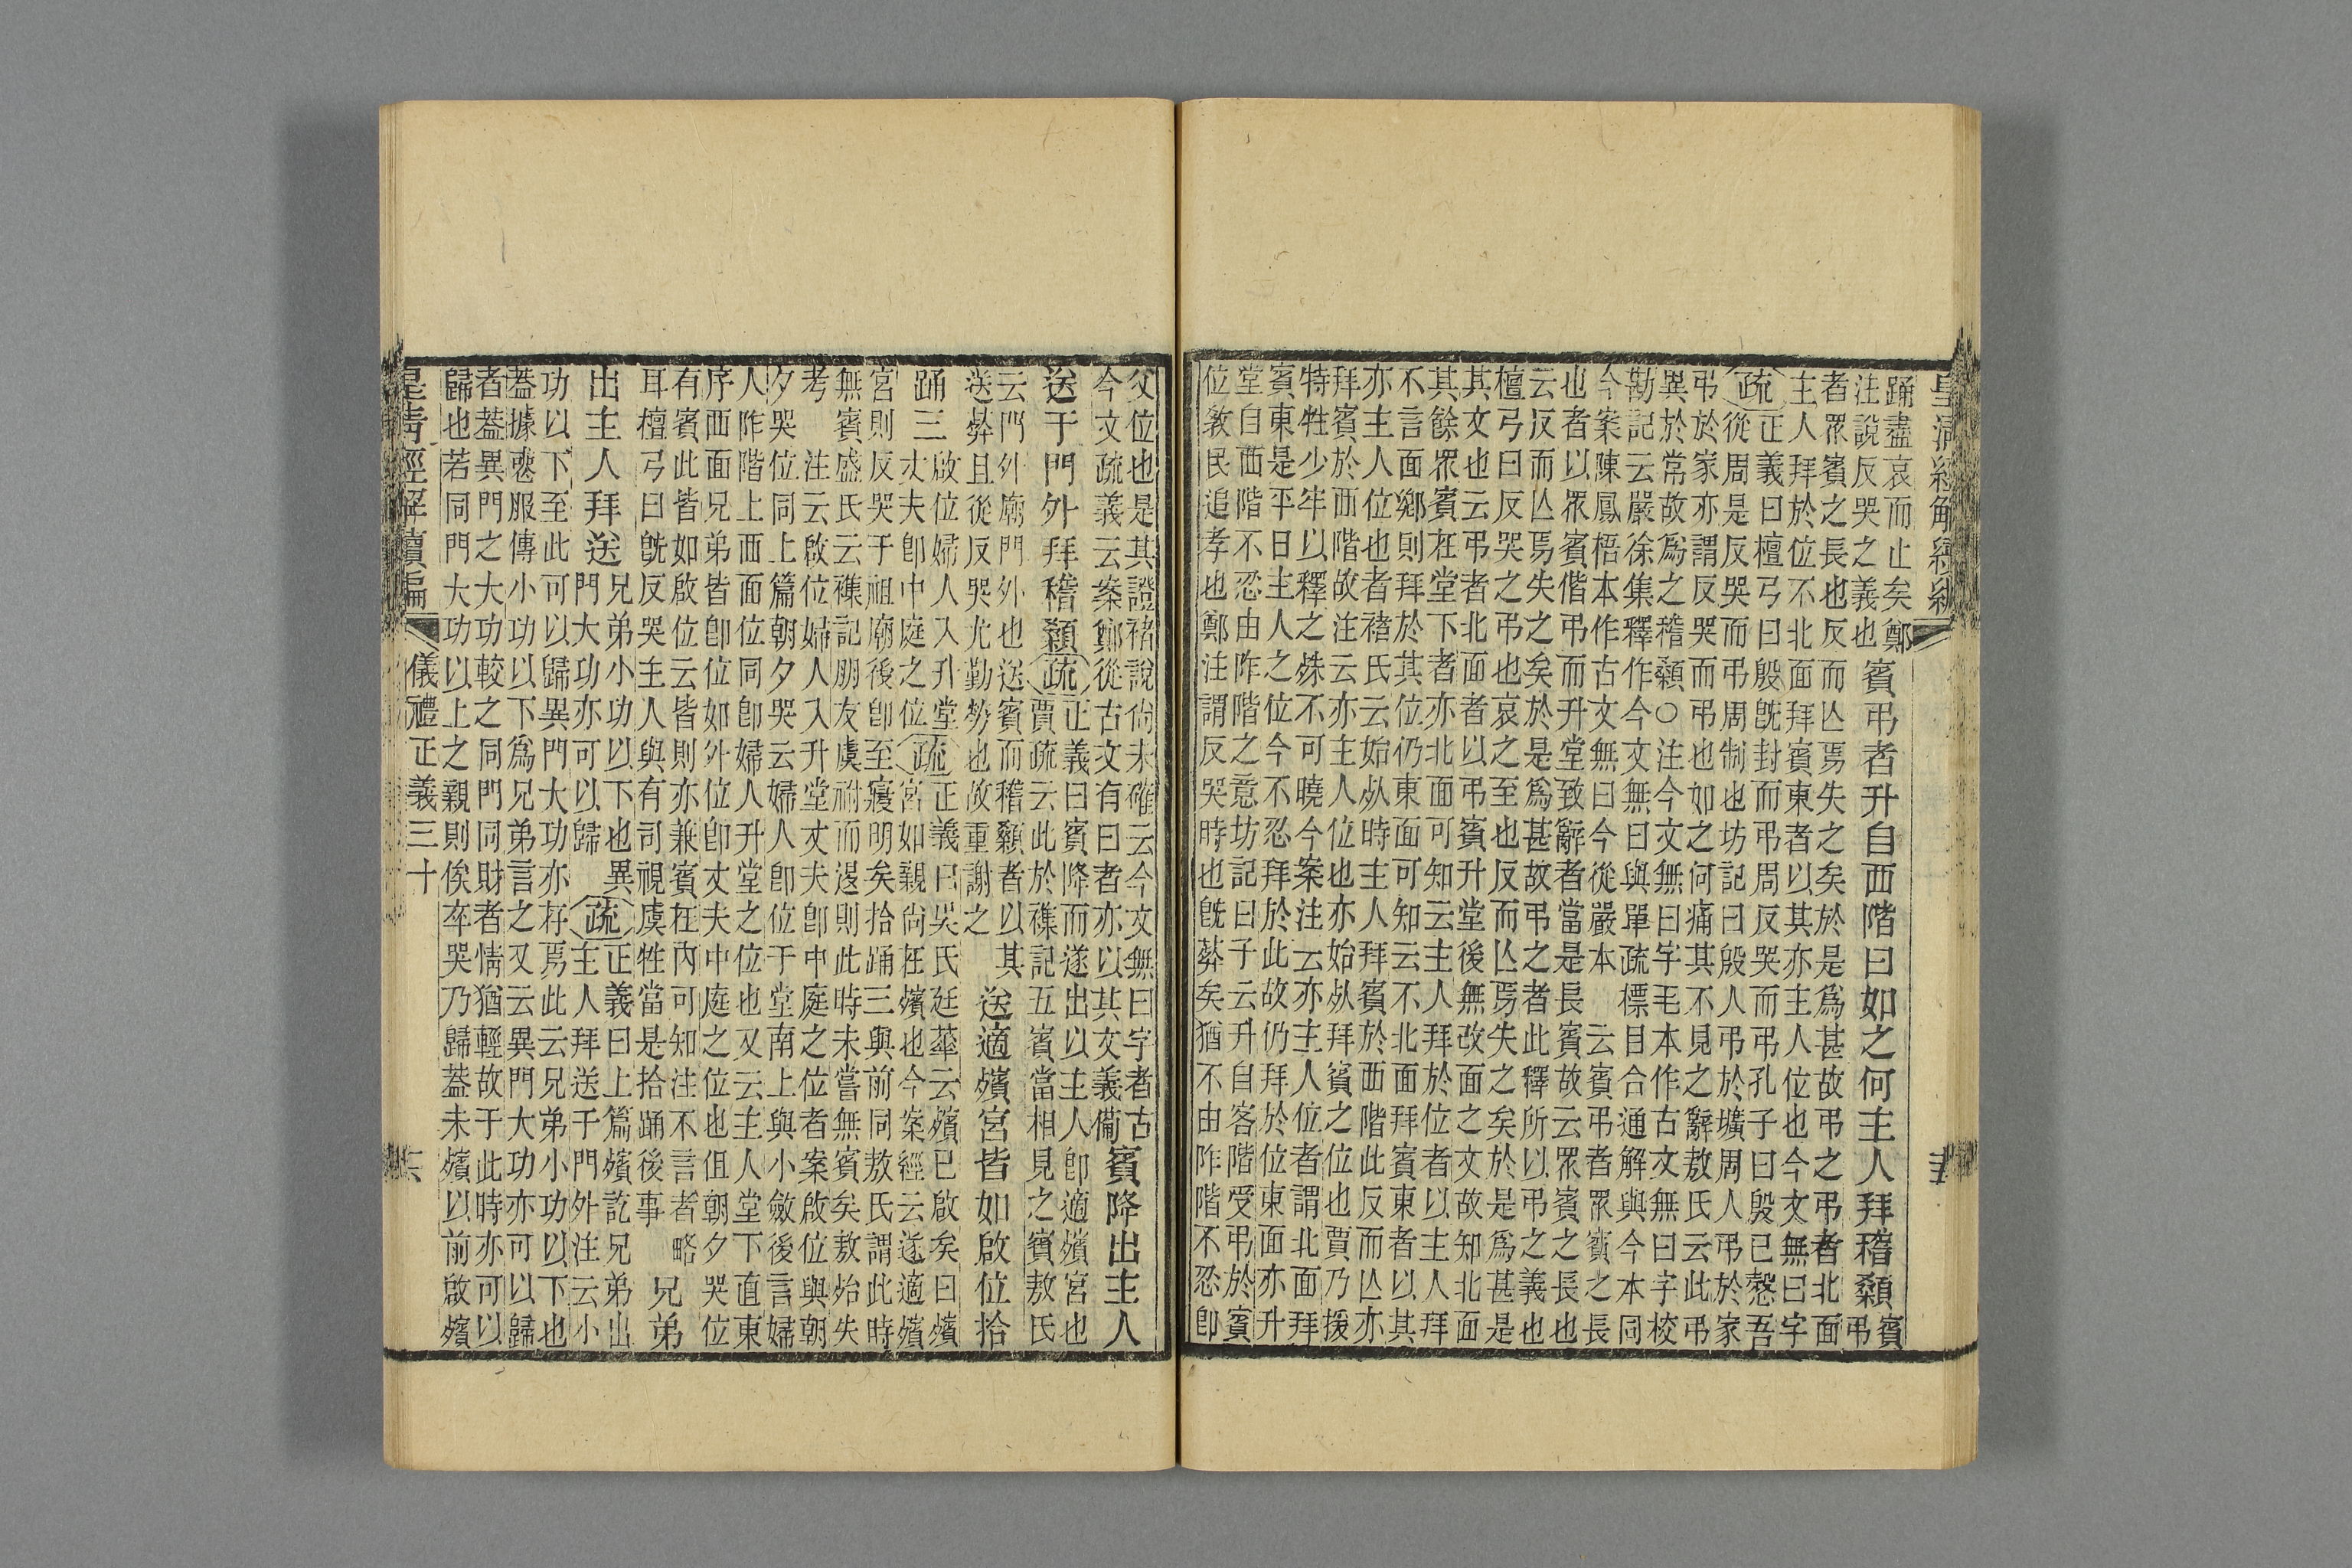 皇清經解續編
踊盡哀而止矣鄭
注說反哭之義也
賓弔者升自西階曰如之何主人拜稽顙
賓弔
者眾賓之長也反而亾焉失之矣於是爲甚故弔之弔者北面
主人拜於位不北面拜賓東者以其亦主人位也今文無曰字
疏
正義曰檀弓曰殷旣封而弔周反哭而弔孔子曰殷已慤吾
從周是反哭而弔周制也坊記曰殷人弔於壙周人弔於家
弔於家亦謂反哭而弔也如之何痛其不見之辭敖氏云此弔
異於常故爲之稽顙○注今文無曰字毛本作古文無曰字校
勘記云嚴徐集釋作今文無曰與單疏標目合通解與今本同
今案陳鳳梧本作古文無曰今從嚴本　云賓弔者眾賓之長
也者以眾賓偕弔而升堂致辭者當是長賓故云眾賓之長也
云反而亾焉失之矣於是爲甚故弔之者此釋所以弔之義也
檀弓曰反哭之弔也哀之至也反而亾焉失之矣於是爲甚是
其文也云弔者北面者以弔賓升堂後無改面之文故知北面
其餘眾賓在堂下者亦北面可知云主人拜於位者以主人拜
不言面鄉則拜於其位仍東面可知云不北面拜賓東者以其
亦主人位也者褚氏云始𣦸時主人拜賓於西階此反而亾亦
拜賓於西階故注云亦主人位也亦始𣦸拜賓之位也賈乃援
特牲少牢以釋之殊不可曉今案注云亦主人位者謂北面拜
賓東是平日主人之位今不忍拜於此故仍拜於位東面亦升
堂自西階不忍由阼階之意坊記曰子云升自客階受弔於賓
位敎民追孝也鄭注謂反哭時也旣葬矣猶不由阼階不忍卽
父位也是其證褚說尙未確云今文無曰字者古
今文疏義云案鄭從古文有曰者亦以其文義備
賓降出主人
送于門外拜稽顙
疏
正義曰賓降而遂出以主人卽適殯宮也
賈疏云此於襍記五賓當相見之賓敖氏
云門外廟門外也送賓而稽顙者以其
送葬且從反哭尤勤勞也故重謝之
送適殯宮皆如啟位拾
踊三
啟位婦人入升堂
丈夫卽中庭之位
疏
正義曰吳氏廷華云殯已啟矣曰殯
宮如親尙在殯也今案經云遂適殯
宮則反哭于祖廟後卽至寢明矣拾踊三與前同敖氏謂此時
無賓盛氏云襍記朋友虞祔而退則此時未嘗無賓矣敖殆失
考　注云啟位婦人入升堂丈夫卽中庭之位者案啟位與朝
夕哭位同上篇朝夕哭云婦人卽位于堂南上與小斂後言婦
人阼階上西面位同卽婦人升堂之位也又云主人堂下直東
序西面兄弟皆卽位如外位卽丈夫中庭之位也但朝夕哭位
有賓此皆如啟位云皆則亦兼賓在內可知注不言者略
耳檀弓曰旣反哭主人與有司視虞牲當是拾踊後事
兄弟
出主人拜送
兄弟小功以下也異
門大功亦可以歸
疏
正義曰上篇殯訖兄弟出
主人拜送于門外注云小
功以下至此可以歸異門大功亦存焉此云兄弟小功以下也
蓋據喪服傳小功以下爲兄弟言之又云異門大功亦可以歸
者蓋異門之大功較之同門同財者情猶輕故于此時亦可以
歸也若同門大功以上之親則俟卒哭乃歸蓋未殯以前啟殯
皇清經解續編
儀禮正義三十